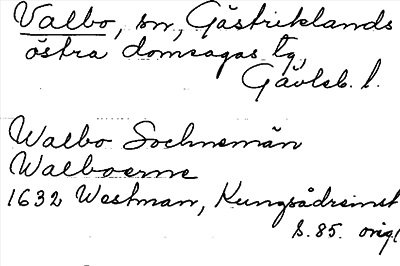 Valbo, sn, Gästriklands
östra domsagas tg,
Gävleb. l.
Walbo Sochnemän
Walboerne
1632 Westman, Kungsådreinst
s. 85. origl